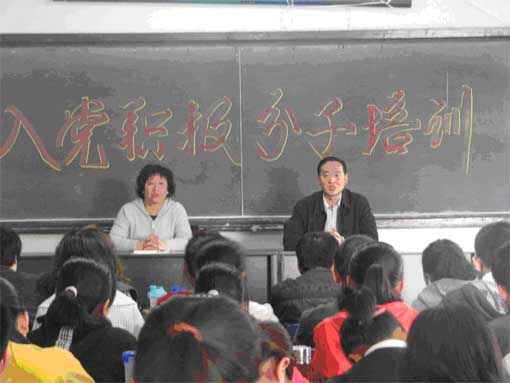 入党积极分子培训